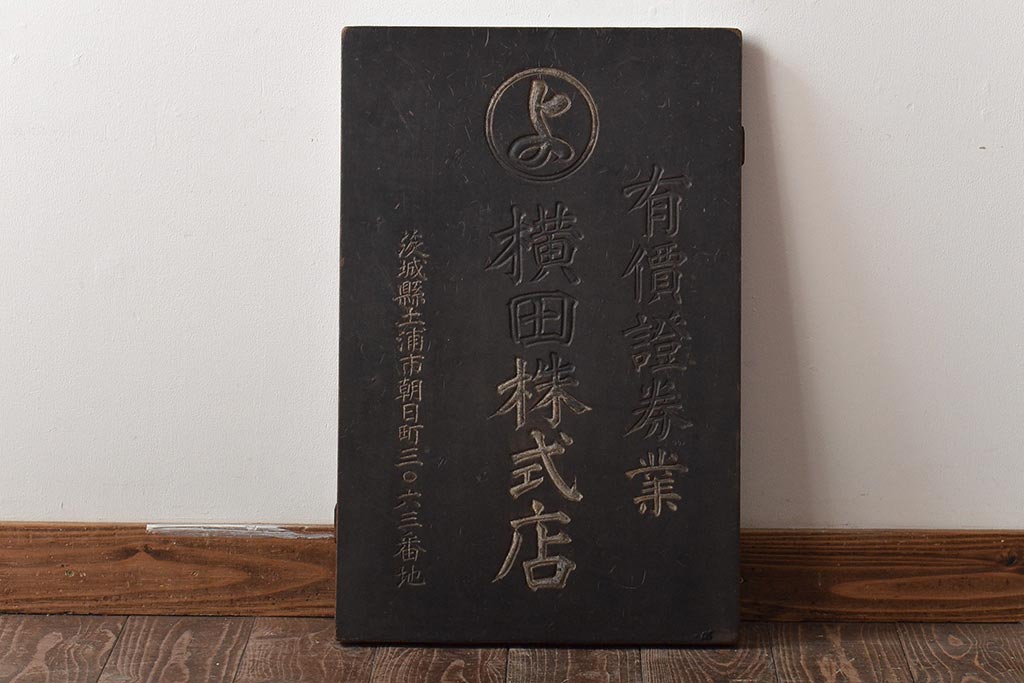 有價證券業
よ
横田株式店
茨城縣土浦市朝日町三〇六三番地